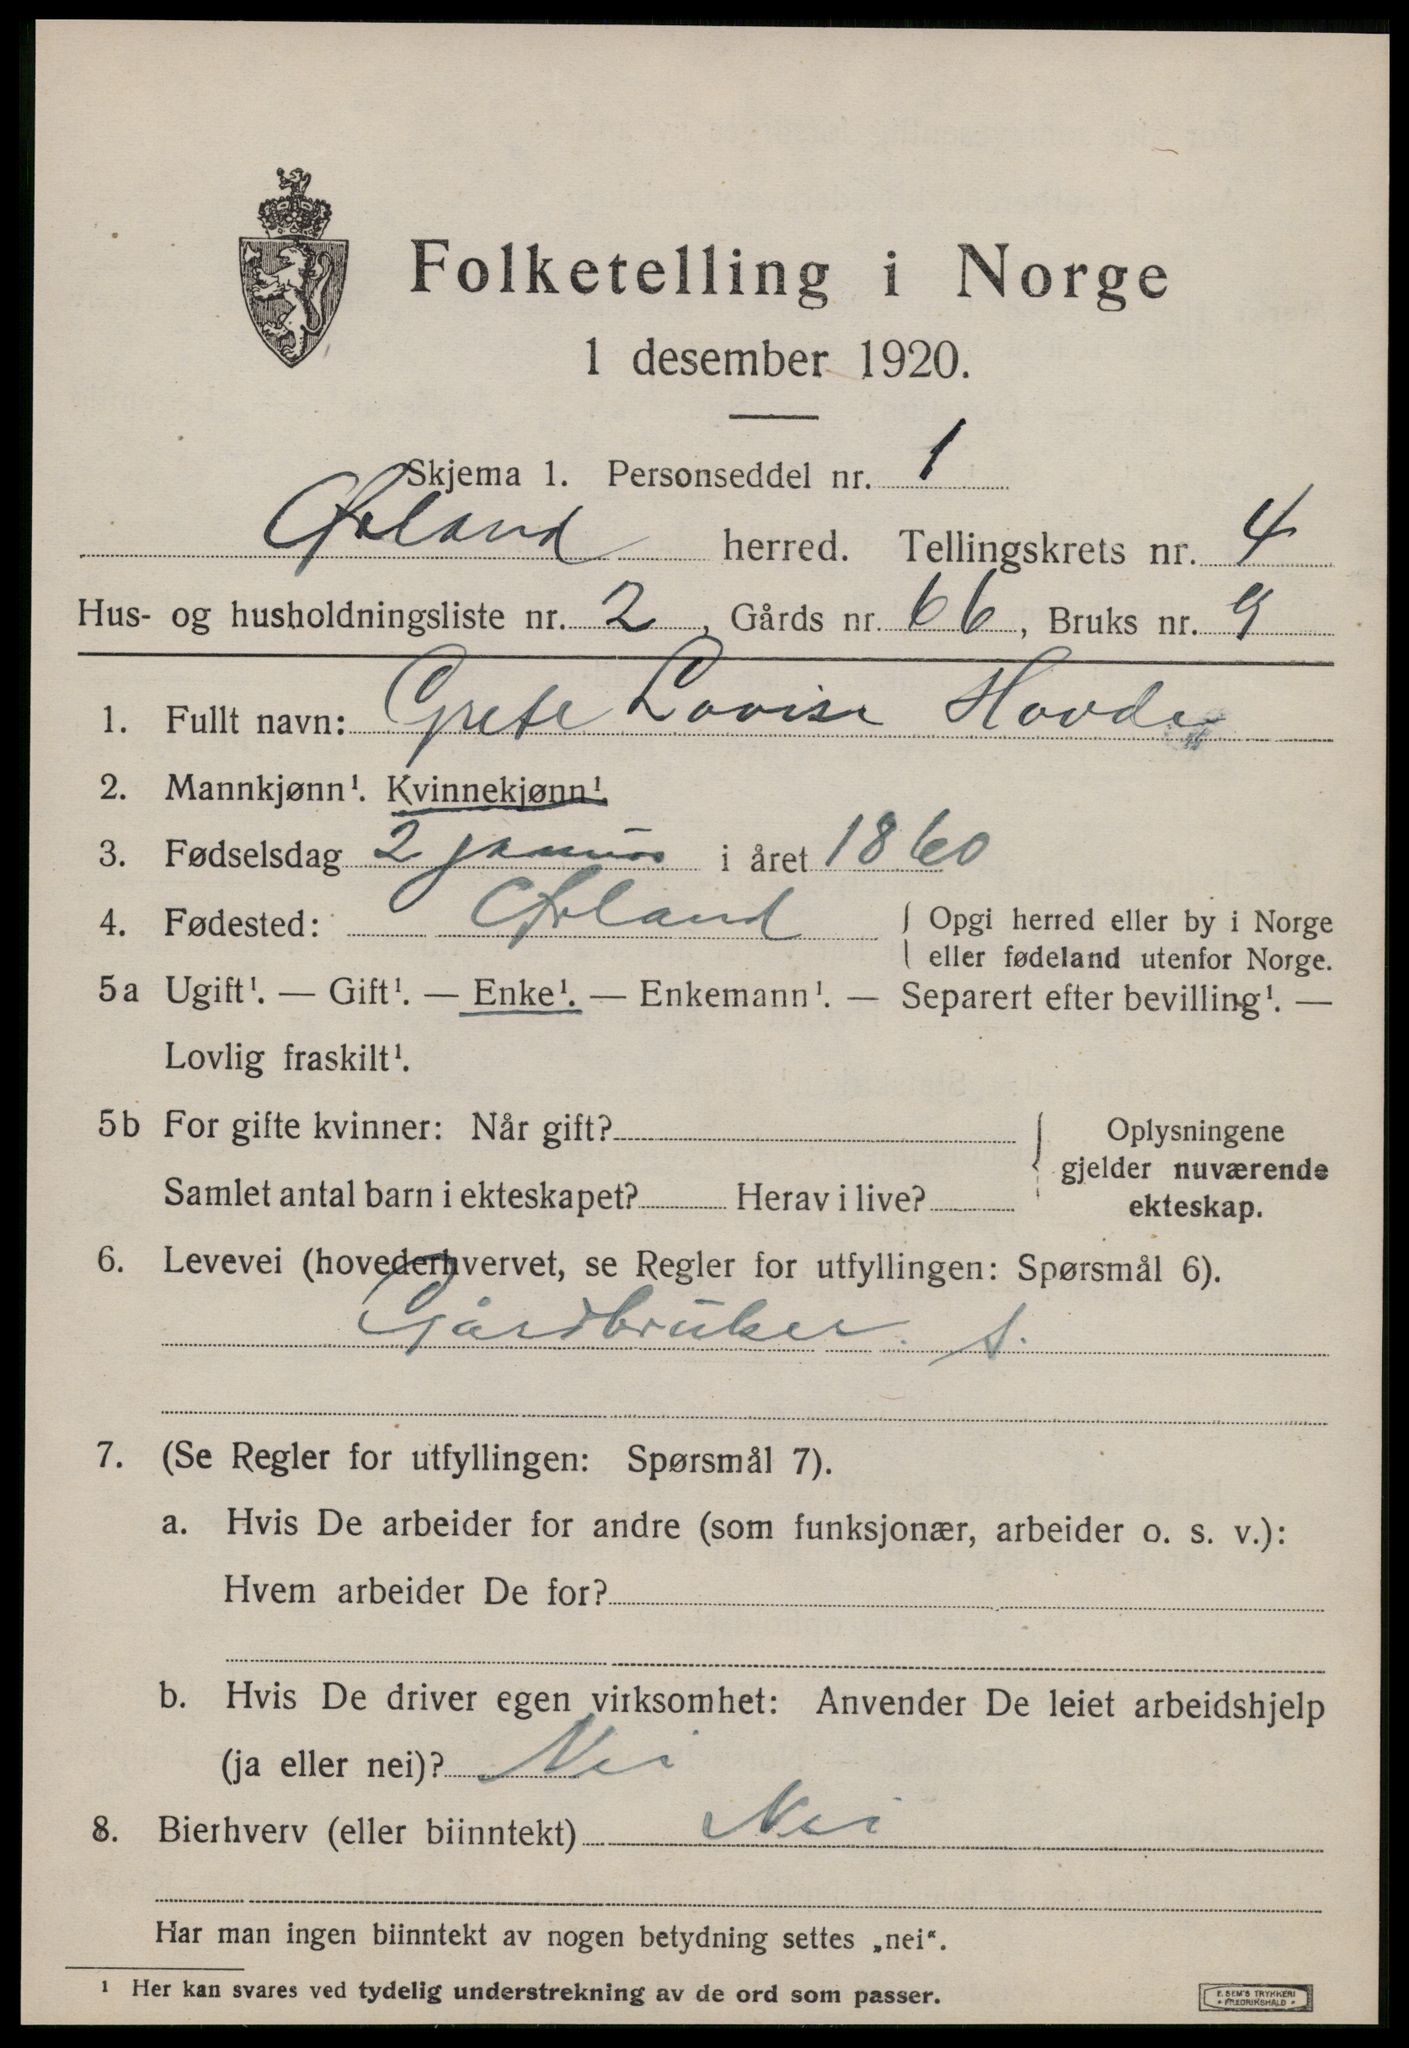 Folketelling i Norge
1 desember 1920.
Skjema 1. Personseddel nr. 1
Ørland herred. Tellingskrets nr. 4
Hus- og husholdningsliste nr. 2, Gårds nr. 66, Bruks nr. 9
1. Fullt navn: Grete Lovise Hovde
2. Mannkjønn¹. Kvinnekjønn¹.
3. Fødselsdag 2 januar i året 1860
4. Fødested: Ørland { Opgi herred eller by i Norge
eller fødeland utenfor Norge.
5a Ugift¹. — Gift¹. — Enke¹. — Enkemann¹. — Separert efter bevilling¹. —
Lovlig fraskilt¹.
5b For gifte kvinner: Når gift?
Samlet antal barn i ekteskapet? Herav i live?
Oplysningene
gjelder nuværende
ekteskap.
6. Levevei (hovederhvervet, se Regler for utfyllingen: Spørsmål 6).
Gårdbruker. s.
7. (Se Regler for utfyllingen: Spørsmål 7).
a. Hvis De arbeider for andre (som funksjonær, arbeider o. s. v.):
Hvem arbeider De for?
b. Hvis De driver egen virksomhet: Anvender De leiet arbeidshjelp
(ja eller nei)? Nei
8. Bierhverv (eller biinntekt) Nei
Har man ingen biinntekt av nogen betydning settes „nei“.
¹ Her kan svares ved tydelig understrekning av de ord som passer.
E. SEM'S TRYKKERI
FREDRIKSHALD